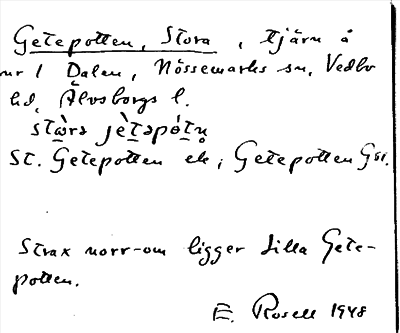 Getepotten, Stora, tjärn å
nr 1 Dalen, Nössemarks sn, Vedbo
hd, Älvsborgs l.
stɷ̀rə jètəpɷ́tn̥
St. Getepotten ek; Getepotten Gst.
Strax norr-om ligger Lilla Gete-
potten.
E. Rosell 1948